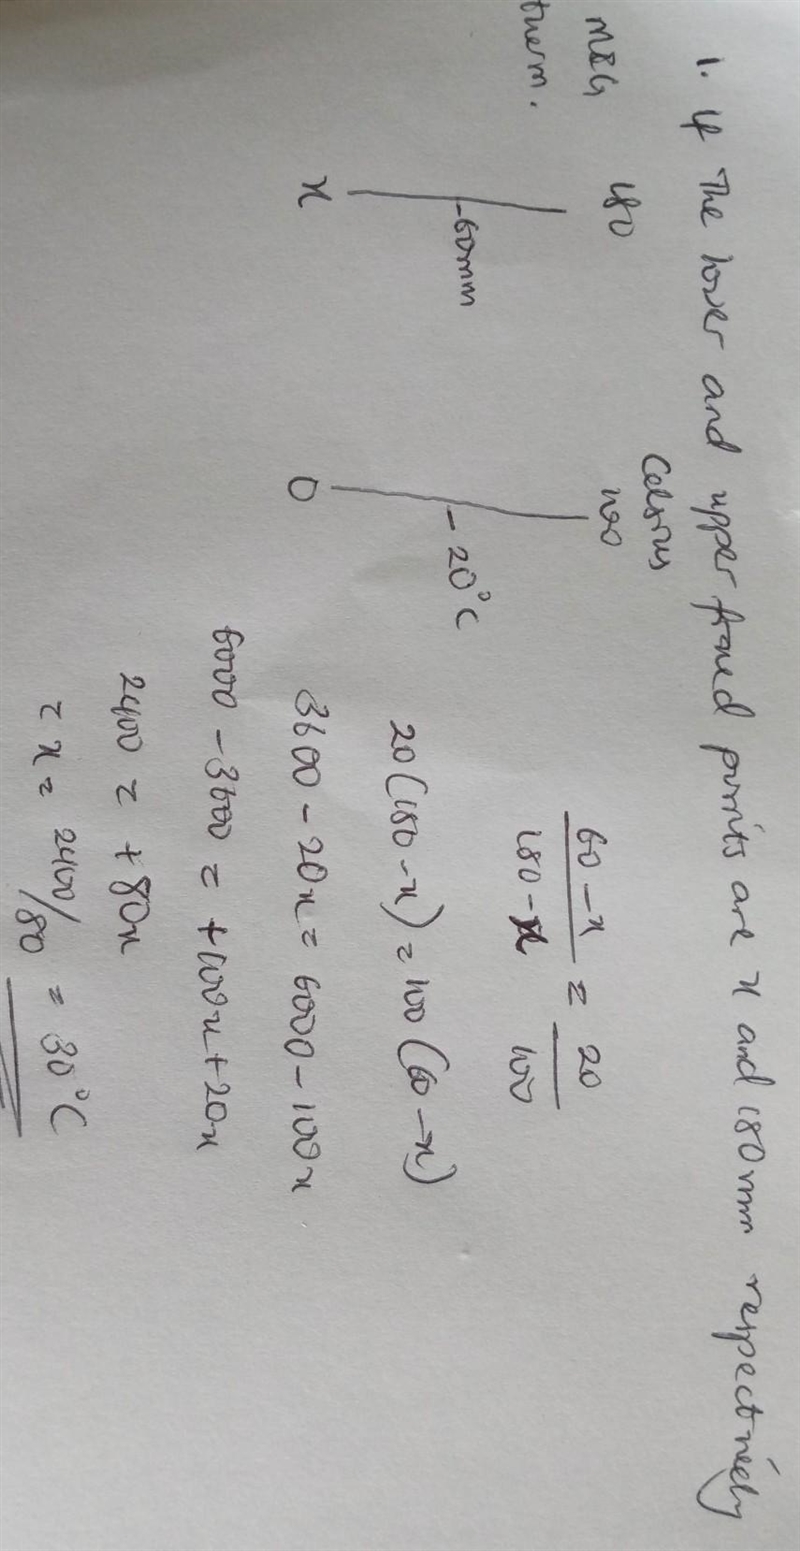 1. If The lower and upper fixed points are x and 180mm respectively
MEG
therm.
180
-60mm
x
Celsius
100
- 20°C
0
60-x/180-x = 20/100
20(180-x) = 100(60-x)
3600 - 20x = 6000 - 100x
6000 - 3600 = +100x+20x
2400 = +80x
= x = 2400/80 = 30°C